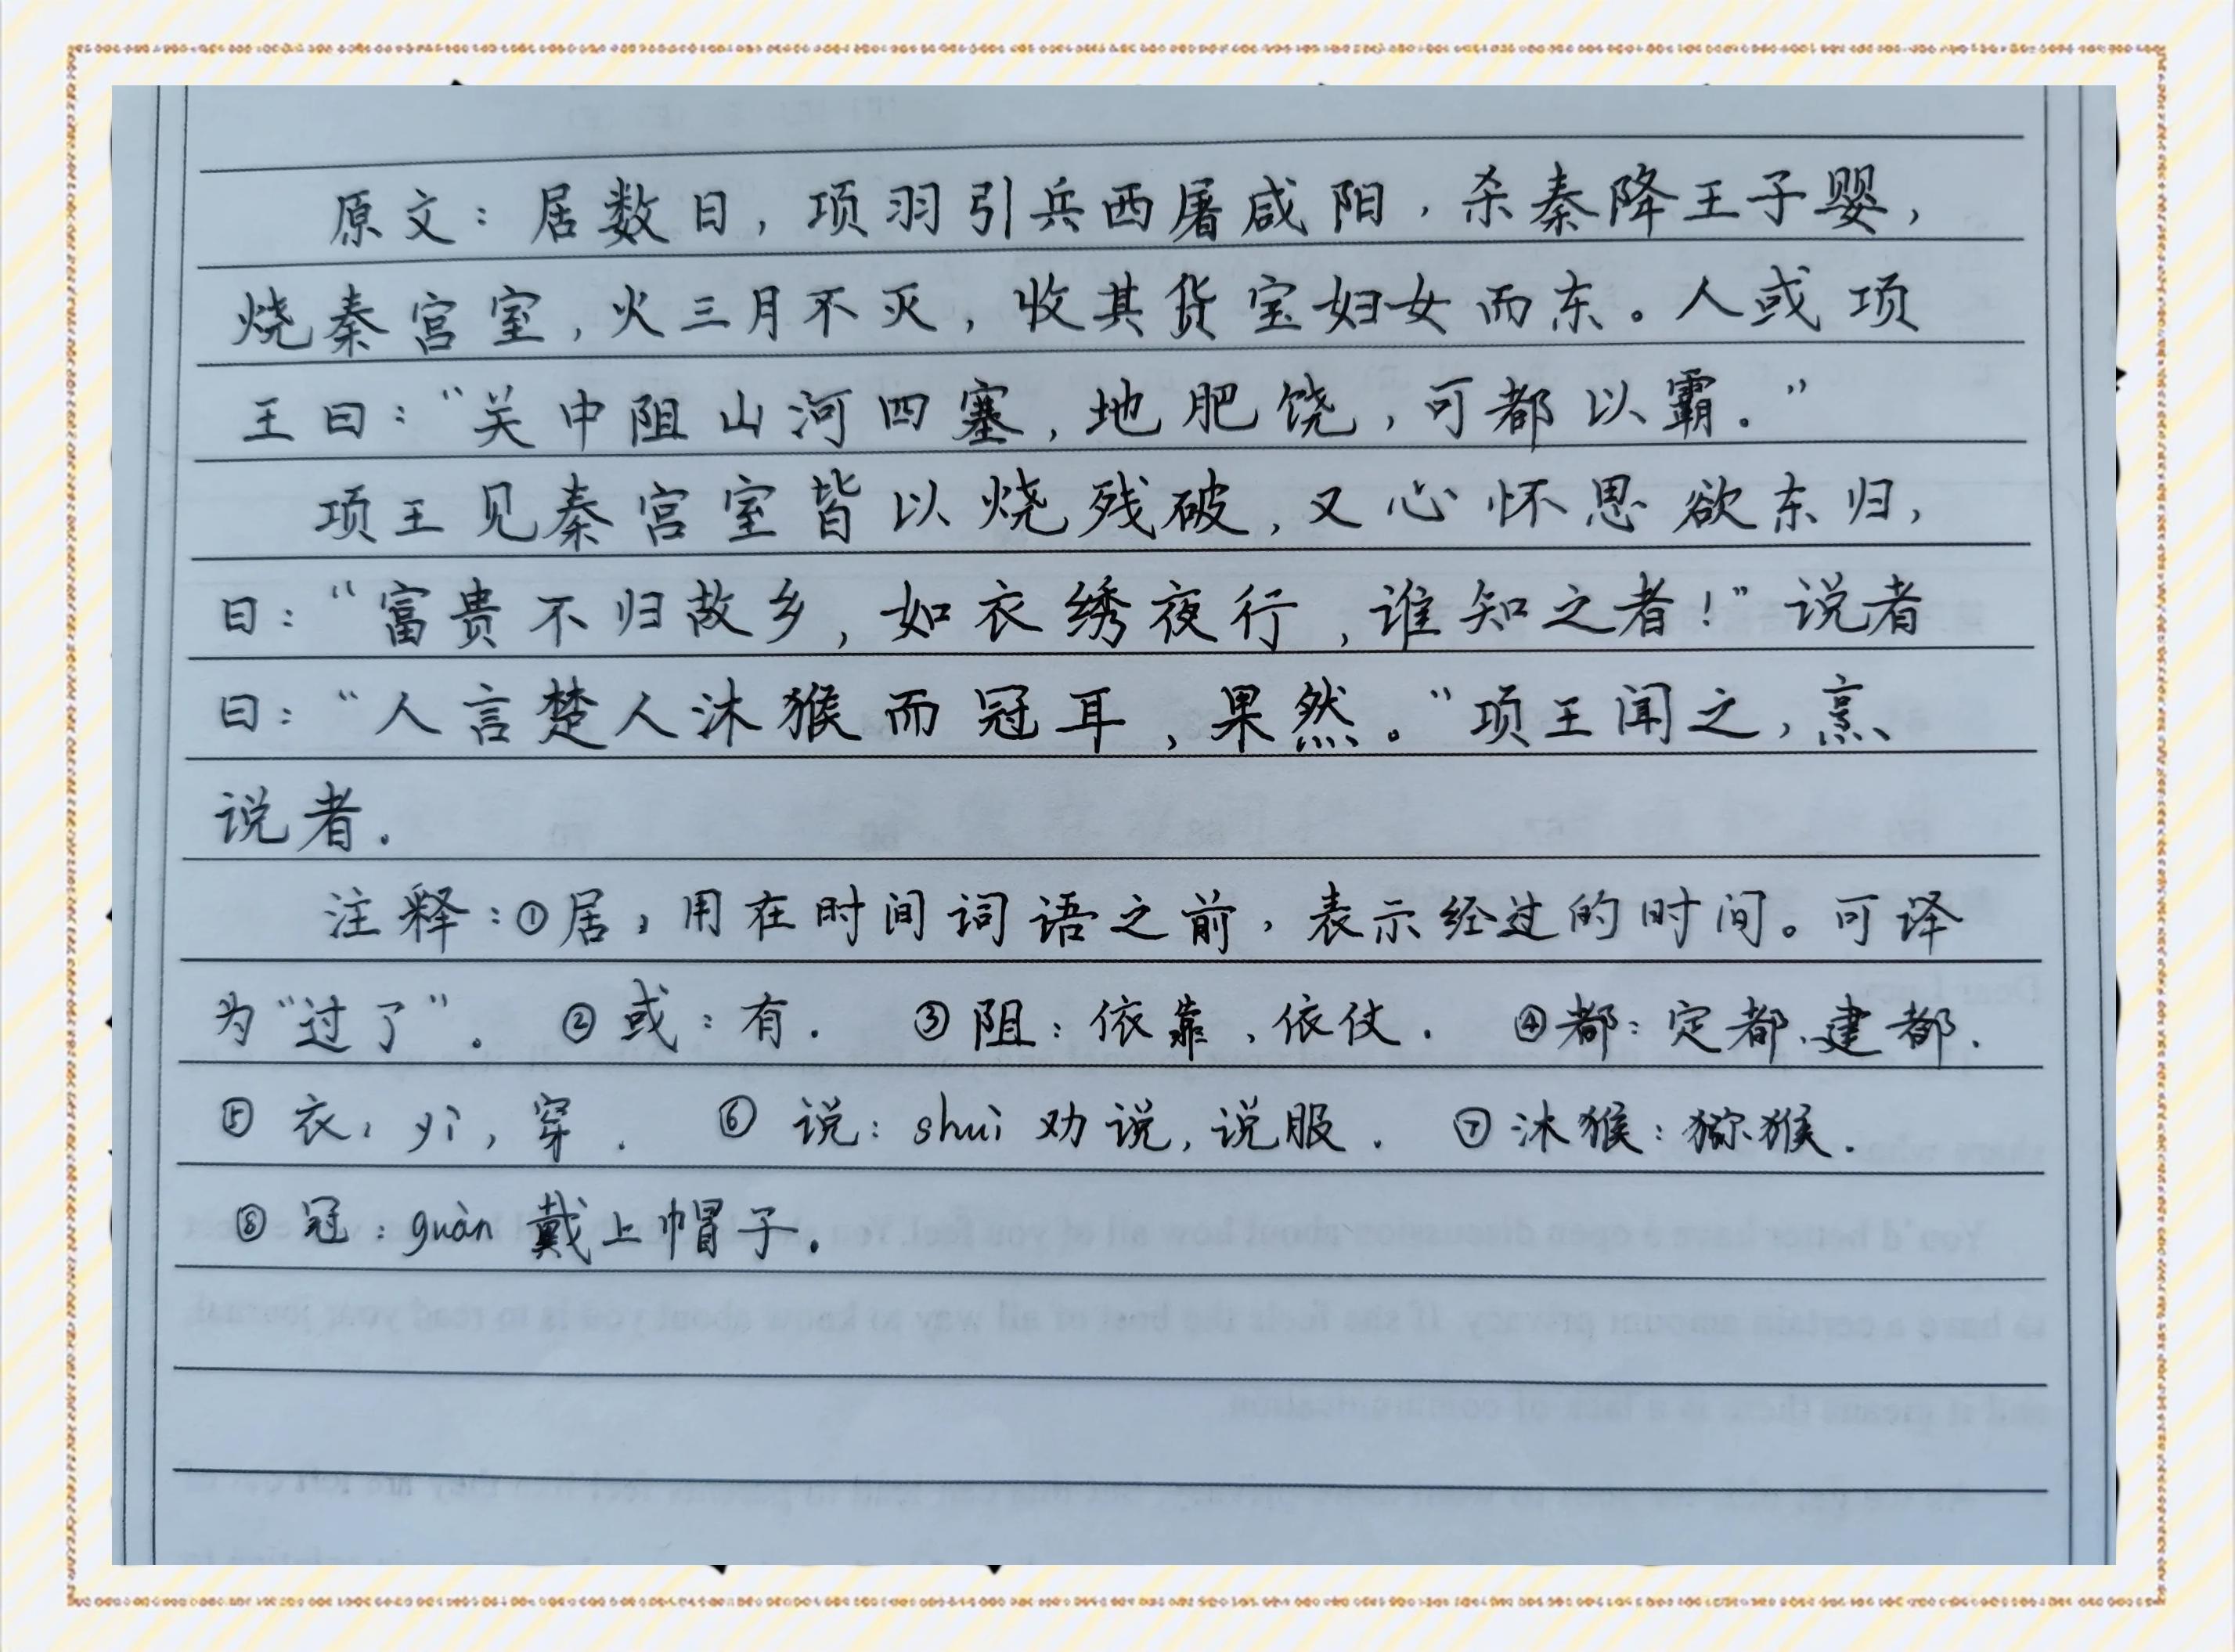 原文：居数日，项羽引兵西屠咸阳，杀秦降王子婴，
烧秦宫室，火三月不灭，收其货宝妇女而东。人或项
王曰：“关中阻山河四塞，地肥饶，可都以霸。”
项王见秦宫室皆以烧残破，又心怀思欲东归，
曰：“富贵不归故乡，如衣绣夜行，谁知之者！”说者
曰：“人言楚人沐猴而冠耳，果然。”项王闻之，烹
说者。
注释：①居，用在时间词语之前，表示经过的时间。可译
为“过了”。 ②或：有. ③阻：依靠、依仗. ④都：定都、建都.
⑤衣，yì，穿. ⑥说：shuì 劝说，说服. ⑦沐猴：猕猴.
⑧冠：guàn 戴上帽子。